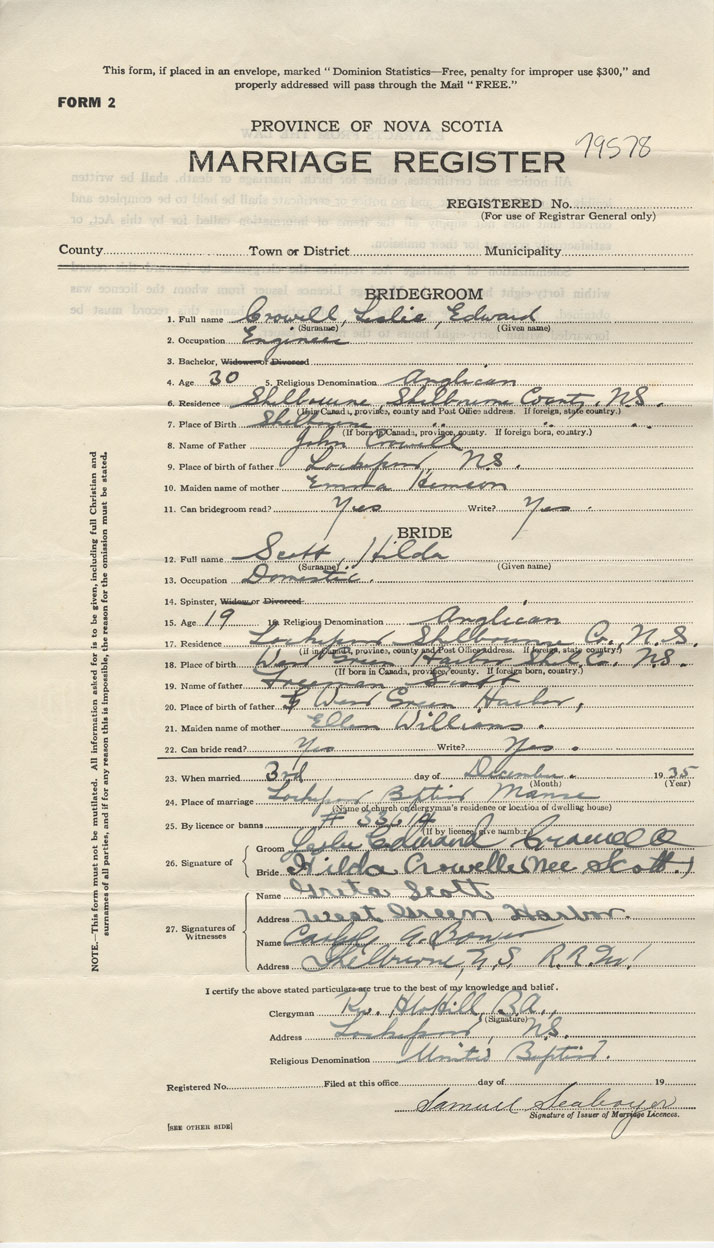 This form, if placed in an envelope, marked "Dominion Statistics—Free, penalty for improper use $300," and
properly addressed will pass through the Mail "FREE."
FORM 2
PROVINCE OF NOVA SCOTIA
MARRIAGE REGISTER 79578
REGISTERED No.
(For use of Registrar General only)
County Town or District Municipality
BRIDEGROOM
1. Full name Crowell, Leslie, Edward
(Surname) (Given name)
2. Occupation Engineer
3. Bachelor, Widower or Divorced
4. Age 30 5. Religious Denomination Anglican
6. Residence Shelbourne Shelbourne County. N.S.
(If in Canada, province, county and Post Office address. If foreign, state country.)
7. Place of Birth Shelbourne " " "
(If born in Canada, province, county. If foreign born, country.)
8. Name of Father John Crowell
9. Place of birth of father Lockeport, N.S.
10. Maiden name of mother Emma
11. Can bridegroom read? Yes Write? Yes.
BRIDE
12. Full name Scott, Hilda
(Surname) (Given name)
13. Occupation Domestic.
14. Spinster, Widow or Divorced
15. Age 19 16. Religious Denomination Anglican
17. Residence Lockeport Shelbourne Co., N.S.
(If in Canada, province, county and Post Office address. If foreign, state country.)
18. Place of birth West Green Harbor Shel. Co. N.S.
(If born in Canada, province, county. If foreign born, country.)
19. Name of father Freeman Scott
20. Place of birth of father West Green Harbor,
21. Maiden name of mother Ellen Williams.
22. Can bride read? Yes Write? Yes.
23. When married 3rd day of December. 1935
(Month) (Year)
24. Place of marriage Lockeport Baptist Manse
(Name of church or clergyman's residence or location of dwelling house)
25. By licence or banns # 33614
(If by licence give number)
26. Signature of
Groom Leslie Edward Crowell
Bride Hilda Crowelle (Nee Scott.)
27. Signatures of Witnesses
Name Greta Scott
Address West Green Harbor.
Name A. Bower
Address Shelburne N.S R.R. No. 1
I certify the above stated particulars are true to the best of my knowledge and belief.
Clergyman Rev. B.A.,
(Signature)
Address Lockeport, N.S.
Religious Denomination United Baptist.
Registered No. Filed at this office day of 19
Samuel Seaboyer
Signature of Issuer of Marriage Licences.
[SEE OTHER SIDE]
NOTE.—This form must not be mutilated. All information asked for is to be given, including full Christian and
surnames of all parties, and if for any reason this is impossible, the reason for the omission must be stated.